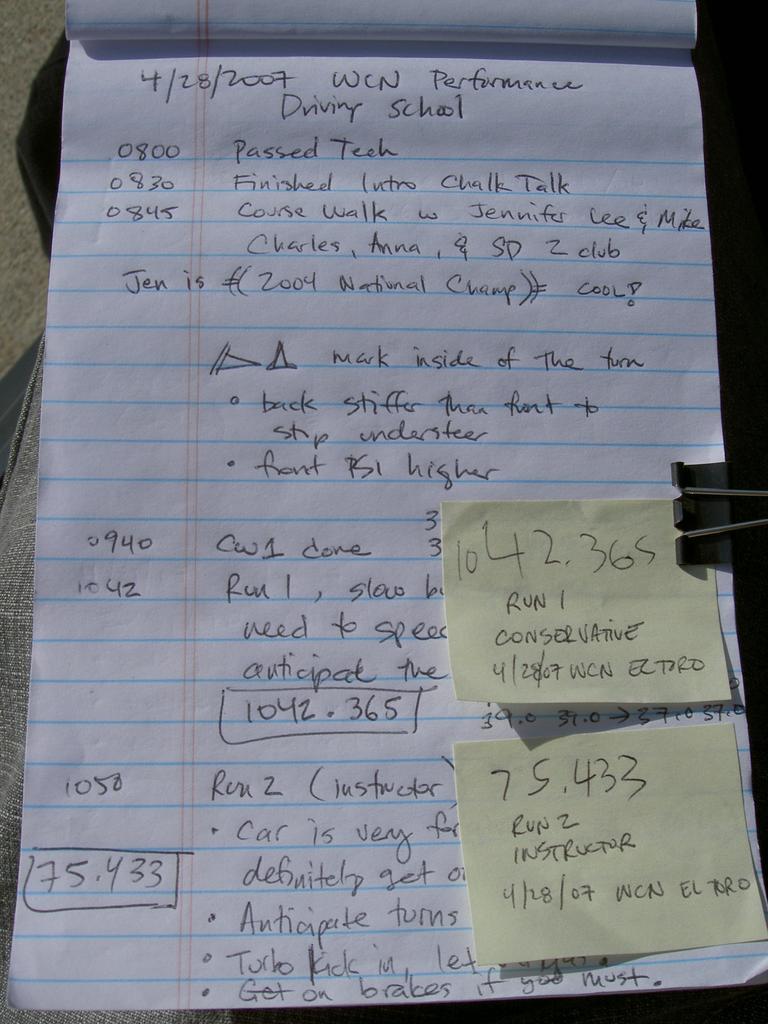 4/28/2007 WCN Performance
Driving School
0800 Passed Tech
0830 Finished Intro Chalk Talk
0845 Course Walk w Jennifer Lee & Mike
Charles, Anna, & SD Z club
Jen is (2004 National Champ) COOL!
mark inside of the turn
• back stiffer than front to
stop understeer
• front PSI higher
3
0940 CW1 done 3
1042 Run 1, slow b
need to speed
anticipate the
1042.365
39.0 37.0 → 37.0 37.0
1042.365
RUN 1
CONSERVATIVE
4/28/07 WCN EL TORO
1050 Run 2 (instructor)
• Car is very
75.433 definitely get
• Anticipate turns
• Turbo kick in, let
• Get on brakes if you must.
75.433
RUN 2
INSTRUCTOR
4/28/07 WCN EL TORO